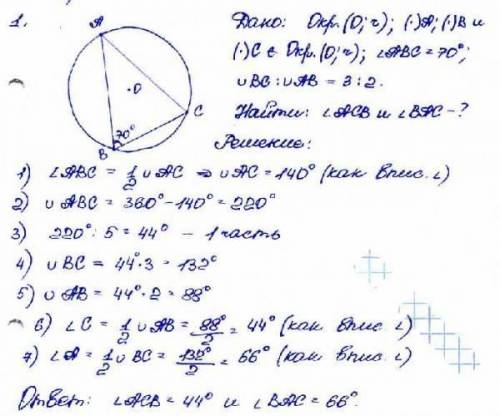 1.
A
O
C
B
70°
Дано: Окр.(O; r); (·)A; (·)B и
(·)C ∈ Окр.(O; r); ∠ABC = 70°;
∪BC : ∪AB = 3 : 2.
Найти: ∠ACB и ∠BAC - ?
Решение:
1) ∠ABC = 1/2 ∪AC ⇒ ∪AC = 140° (как впис. ∠)
2) ∪ABC = 360° - 140° = 220°
3) 220° : 5 = 44° - 1 часть
4) ∪BC = 44°·3 = 132°
5) ∪AB = 44°·2 = 88°
6) ∠C = 1/2 ∪AB = 88°/2 = 44° (как впис. ∠)
7) ∠A = 1/2 ∪BC = 132°/2 = 66° (как впис. ∠)
Ответ: ∠ACB = 44° и ∠BAC = 66°.